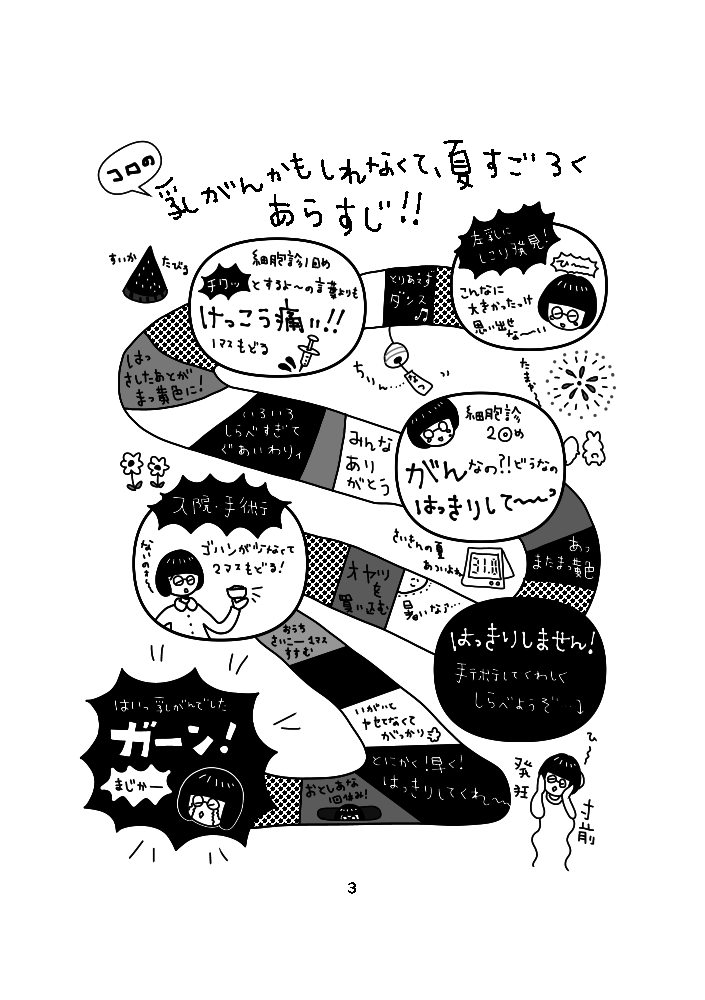 コロの
乳がんかもしれなくて、夏すごろく
あらすじ!!
すいか
たびる
左乳に
しこり発見!
ひ〜〜
こんなに
大きかったっけ
思い出せ
な〜〜い
とりあえず
ダンス♫
細胞診1回め
チクッ
とするよ〜の言葉よりも
けっこう痛い!!
1マスもどる
ちりん....
はっ
さしたあとが
まっ黄色に!
いろいろ
しらべすぎて
ぐあいわりィ
みんな
あり
がとう
たまや〜
細胞診
2回め
がんなの?!どうなの
はっきりして〜〜っ
あっ
またまっ黄色
さいきんの夏
あついよね
31.0
はっきりしません!
手術してくわしく
しらべようぞ…
暑いなァ…
オヤツ
を
買い込む
入院・手術
ゴハンが少なくて
2マスもどる!
ないの〜
おうち
さいこー 1マス
すすむ
いがいと
ヤセてなくて
がっかり
とにかく!早く!
はっきりしてくれ〜〜
おとしあな
1回休み!
はいっ乳がんでした
ガーン!
まじかー
ひ〜
発狂
寸前
3